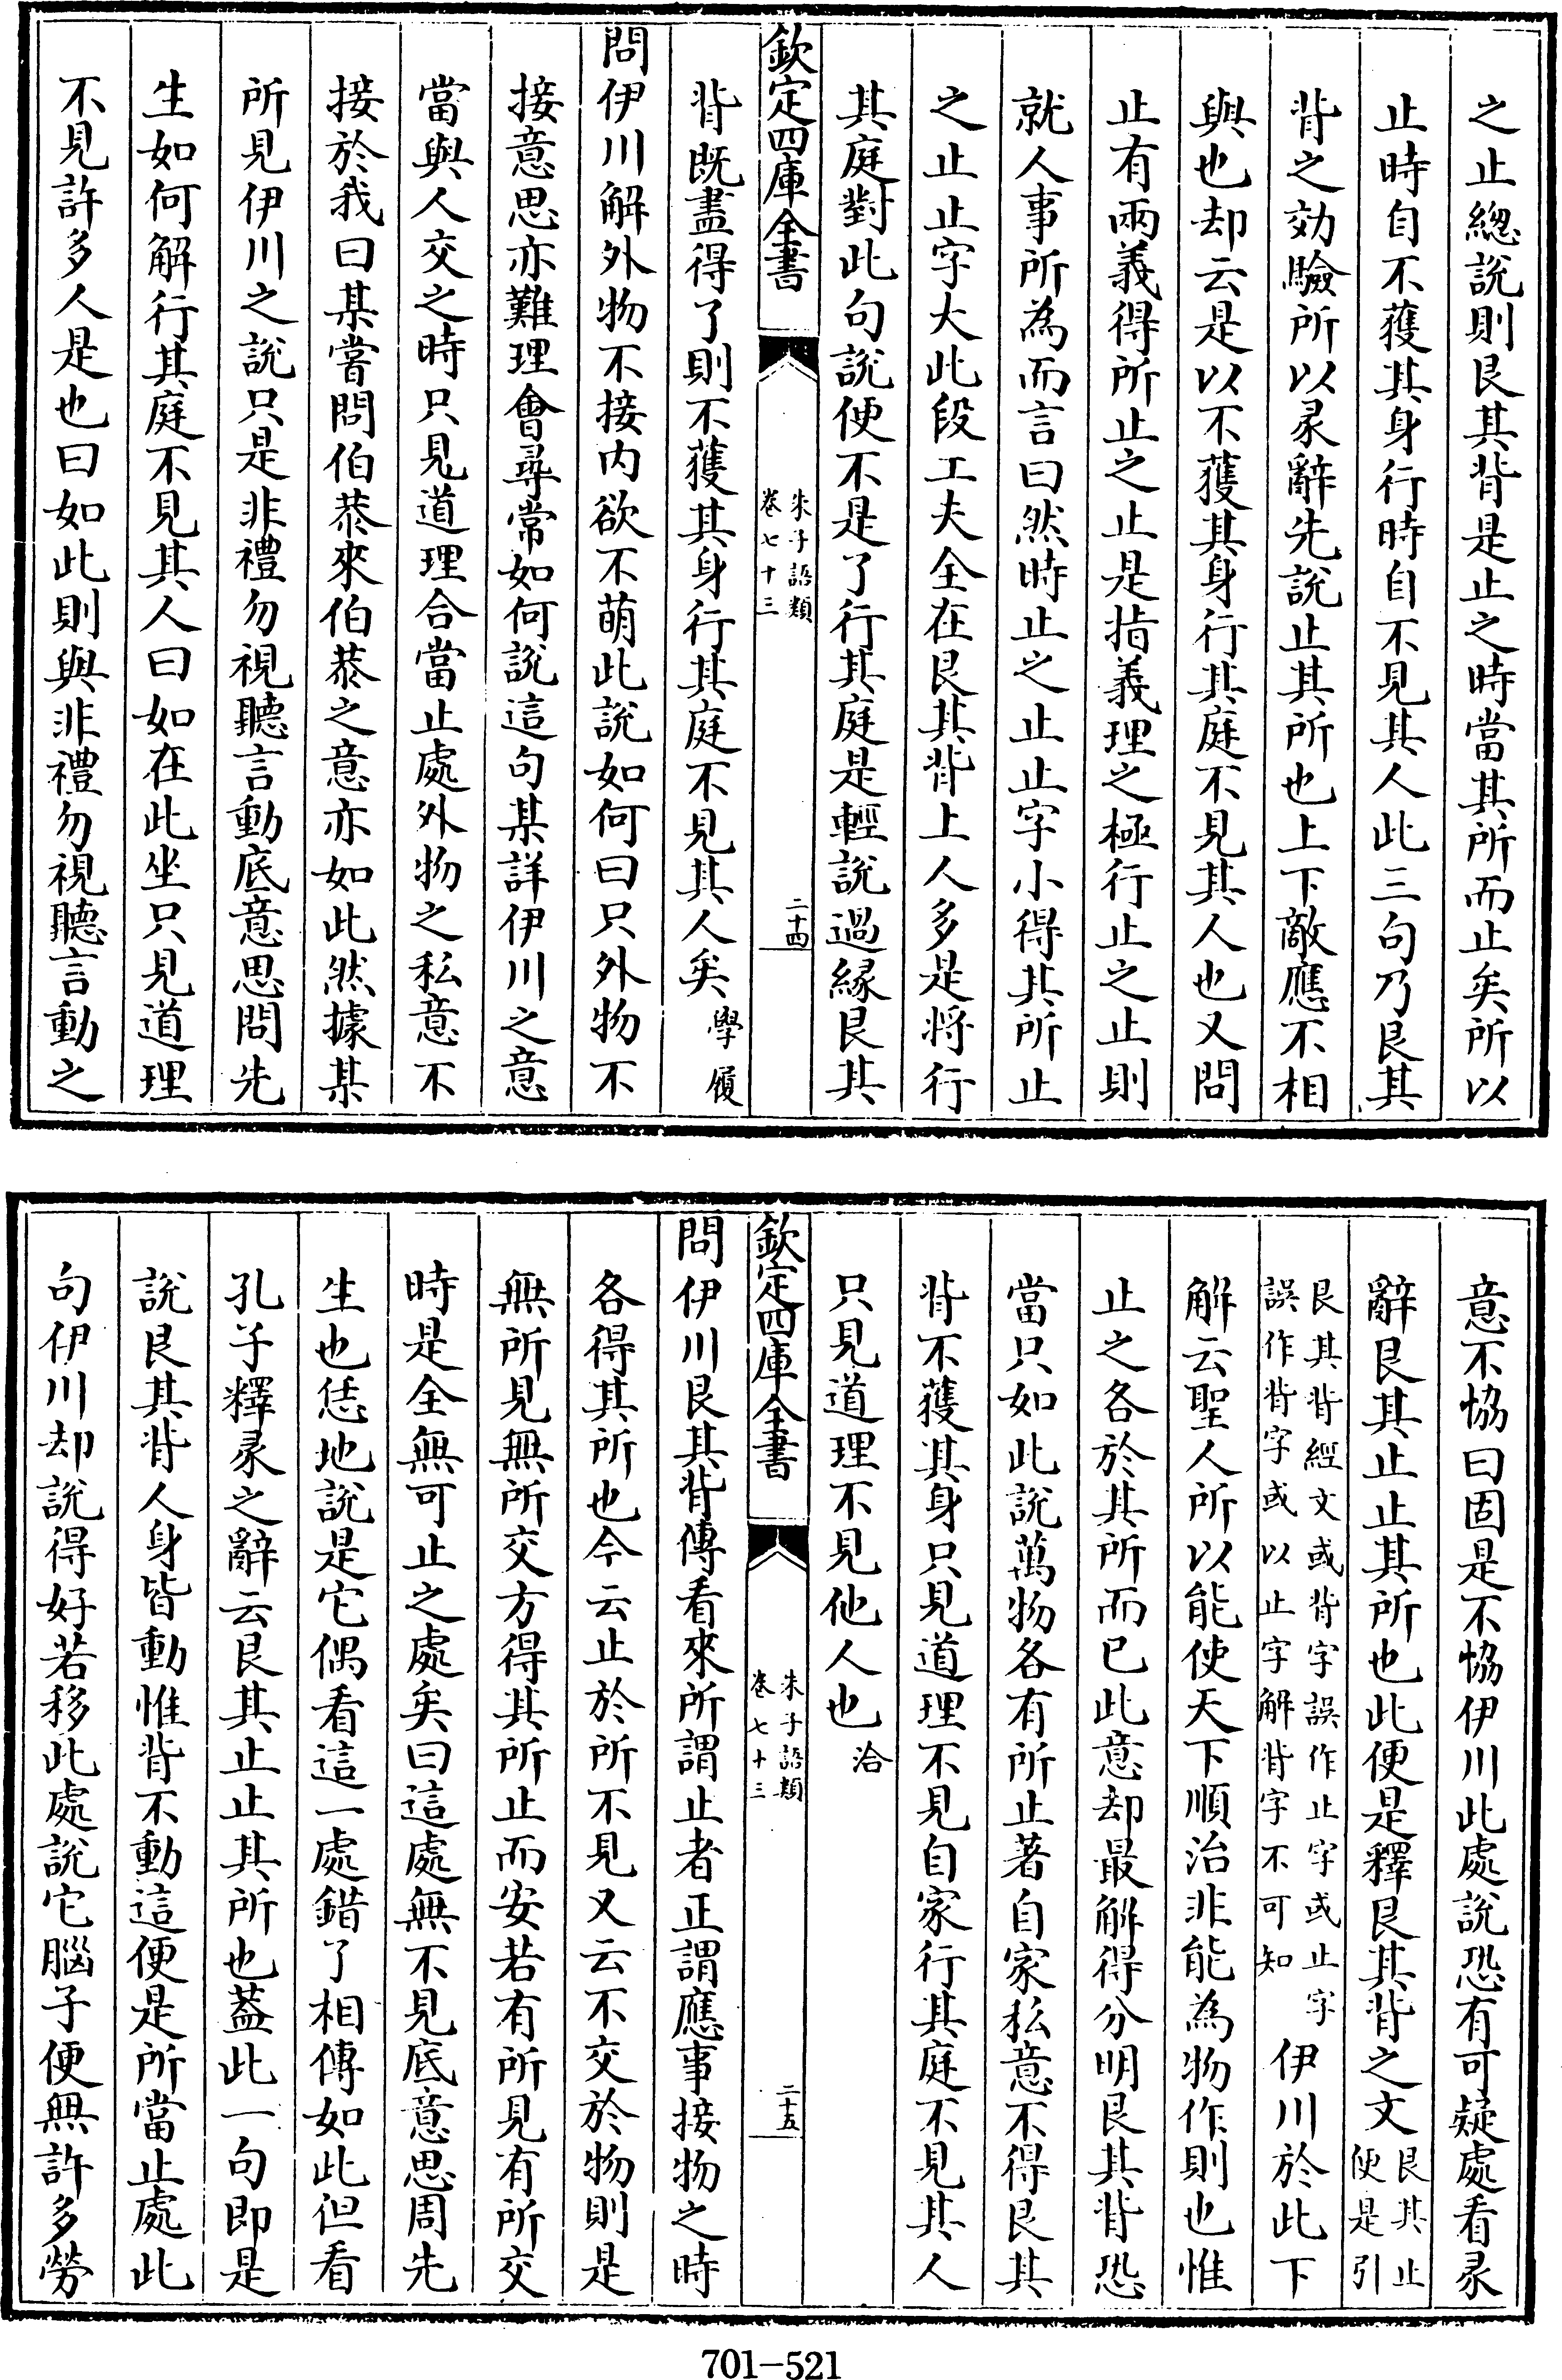 之止緫説則艮其背是止之時當其所而止矣所以
止時自不獲其身行時自不見其人此三句乃艮其
背之効驗所以彖辭先説止其所也上下敵應不相
與也却云是以不獲其身行其庭不見其人也又問
止有兩義得所止之止是指義理之極行止之止則
就人事所為而言曰然時止之止止字小得其所止
之止止字大此段工夫全在艮其背上人多是將行
其庭對此句説便不是了行其庭是輕説過縁艮其
欽定四庫全書
朱子語類
卷七十三
二十四
背既盡得了則不獲其身行其庭不見其人矣學履
問伊川解外物不接内欲不萌此説如何曰只外物不
接意思亦難理會尋常如何説這句某詳伊川之意
當與人交之時只見道理合當止處外物之私意不
接於我曰某嘗問伯恭來伯恭之意亦如此然據某
所見伊川之説只是非禮勿視聽言動底意思問先
生如何解行其庭不見其人曰如在此坐只見道理
不見許多人是也曰如此則與非禮勿視聽言動之
意不恊曰固是不恊伊川此處説恐有可疑處看彖
辭艮其止止其所也此便是釋艮其背之文艮其止
便是引
艮其背經文或背字誤作止字或止字
誤作背字或以止字解背字不可知
伊川於此下
解云聖人所以能使天下順治非能為物作則也惟
止之各於其所而已此意却最解得分明艮其背恐
當只如此説萬物各有所止著自家私意不得艮其
背不獲其身只見道理不見自家行其庭不見其人
只見道理不見他人也洽
欽定四庫全書
朱子語類
卷七十三
二十五
問伊川艮其背傳看來所謂止者正謂應事接物之時
各得其所也今云止於所不見又云不交於物則是
無所見無所交方得其所止而安若有所見有所交
時是全無可止之處矣曰這處無不見底意思周先
生也恁地説是它偶看這一處錯了相傳如此但看
孔子釋彖之辭云艮其止止其所也葢此一句即是
説艮其背人身皆動惟背不動這便是所當止處此
句伊川却説得好若移此處説它腦子便無許多勞
701-521